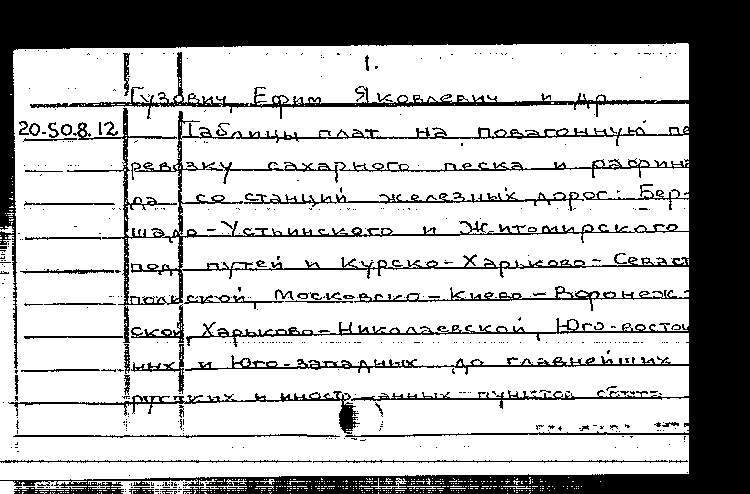 1.
Гузович, Ефим Яковлевич и др
20-50.8.12 Таблицы плат на повагонную пе
ревозку сахарного песка и рафина
да со станций железных дорог: Бер-
шадо-Устьинского и Житомирского
под. путей и Курско-Харьково-Севаст
польской, Московско-Киево-Воронеж-
ской, Харьково-Николаевской, Юго-восточ
ных и Юго-западных до главнейших
русских и иностранных пунктов сбыта